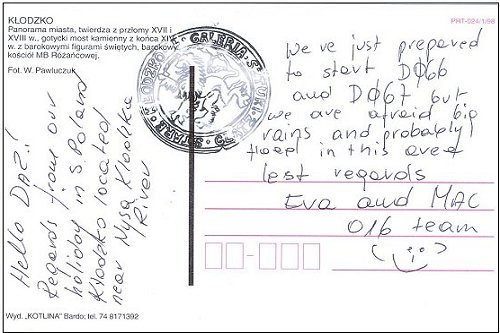 KŁODZKO
Panorama miasta, twierdza z przłomy XVII i
XVIII w., gotycki most kamienny z końca XIV
w. z barokowymi figurami świętych, barokowy
kościół MB Różańcowej.
Fot. W. Pawluczuk
PRT-024/1/98
GALERIA
KŁODZKO
Hello DAZ!
Regards from our
holiday in S Poland
Kłodzko located
near Nysa Kłodzka
River
We've just prepared
to start DØ66
and DØ67 but
we are afraid big
rains and probably!
floed in this area
best regards
Eva and MAC
016 team
Wyd. „KOTLINA" Bardo; tel. 74 8171392